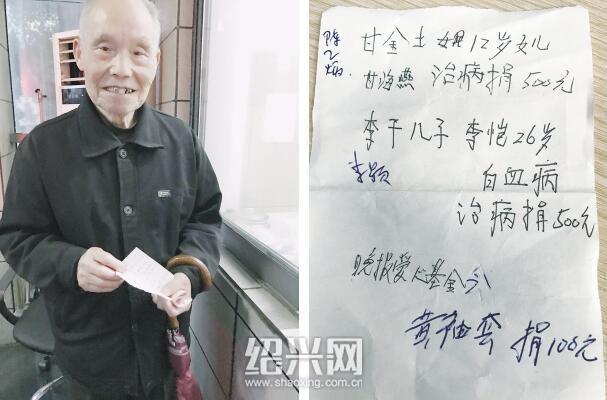 甘金土 12岁女儿
甘海燕 治病捐500元
李干儿子 李恺26岁
李颖
白血病
治病捐500元
晚报爱心基金
捐100元
绍兴网
www.shaoxing.com.cn